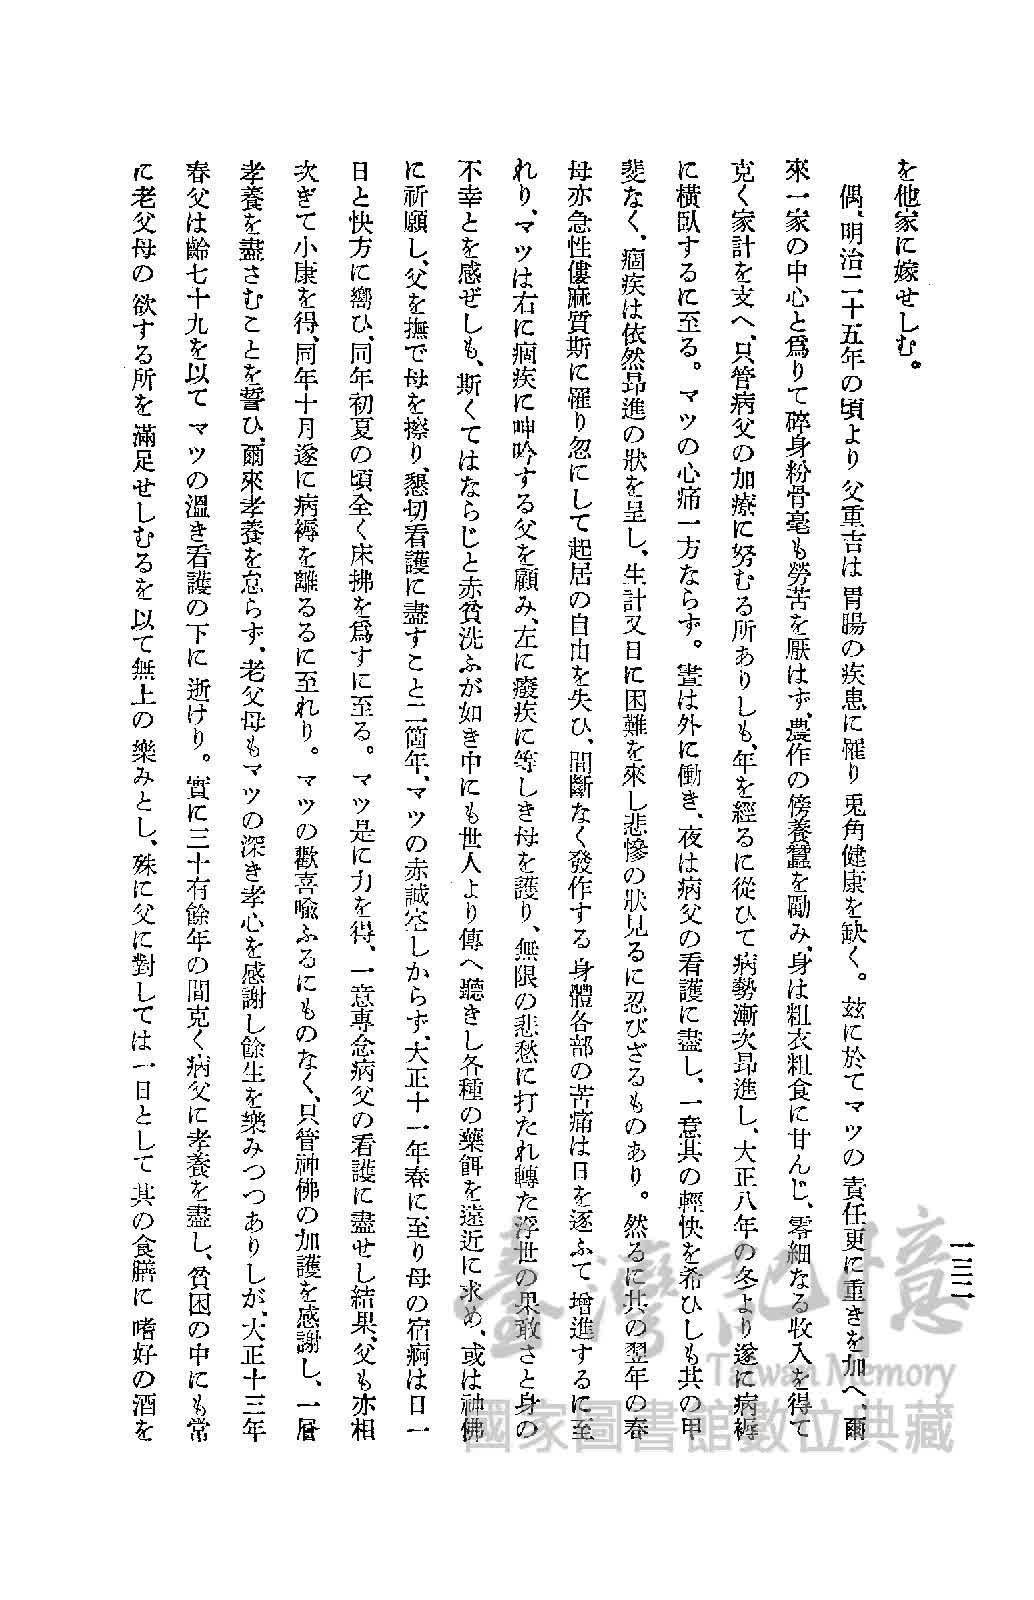 を他家に嫁せしむ。
偶、明治二十五年の頃より父重吉は胃腸の疾患に罹り兎角健康を缺く。玆に於てマツの責任更に重きを加へ、爾
來一家の中心と爲りて碎身粉骨毫も勞苦を厭はず、農作の傍養蠶を勵み、身は粗衣粗食に甘んじ、零細なる收入を得て
克く家計を支へ、只管病父の加療に努むる所ありしも、年を經るに從ひて病勢漸次昂進し、大正八年の冬より遂に病褥
に橫臥するに至る。マツの心痛一方ならず。晝は外に働き、夜は病父の看護に盡し、一意其の輕快を希ひしも其の甲
斐なく、痼疾は依然昂進の狀を呈し、生計又日に困難を來し悲慘の狀見るに忍びざるものあり。然るに其の翌年の春
母亦急性僂麻質斯に罹り忽にして起居の自由を失ひ、間斷なく發作する身體各部の苦痛は日を逐ふて增進するに至
れり、マツは右に痼疾に呻吟する父を顧み、左に癈疾に等しき母を護り、無限の悲愁に打たれ轉た浮世の果敢さと身の
不幸とを感ぜしも、斯くてはならじと赤貧洗ふが如き中にも世人より傳へ聽きし各種の藥餌を遠近に求め、或は神佛
に祈願し、父を撫で母を擦り、懇切看護に盡すこと二箇年、マツの赤誠空しからず、大正十一年春に至り母の宿痾は日一
日と快方に嚮ひ、同年初夏の頃全く床拂を爲すに至る。マツ是に力を得、一意專念病父の看護に盡せし結果、父も亦相
次ぎて小康を得、同年十月遂に病褥を離るるに至れり。マツの歡喜喩ふるにものなく、只管神佛の加護を感謝し、一層
孝養を盡さむことを誓ひ、爾來孝養を怠らず、老父母もマツの深き孝心を感謝し餘生を樂みつつありしが、大正十三年
春父は齡七十九を以てマツの溫き看護の下に逝けり。實に三十有餘年の間克く病父に孝養を盡し、貧困の中にも常
に老父母の欲する所を滿足せしむるを以て無上の樂みとし、殊に父に對しては一日として其の食膳に嗜好の酒を
一三二
臺灣記憶
Taiwan Memory
國家圖書館數位典藏